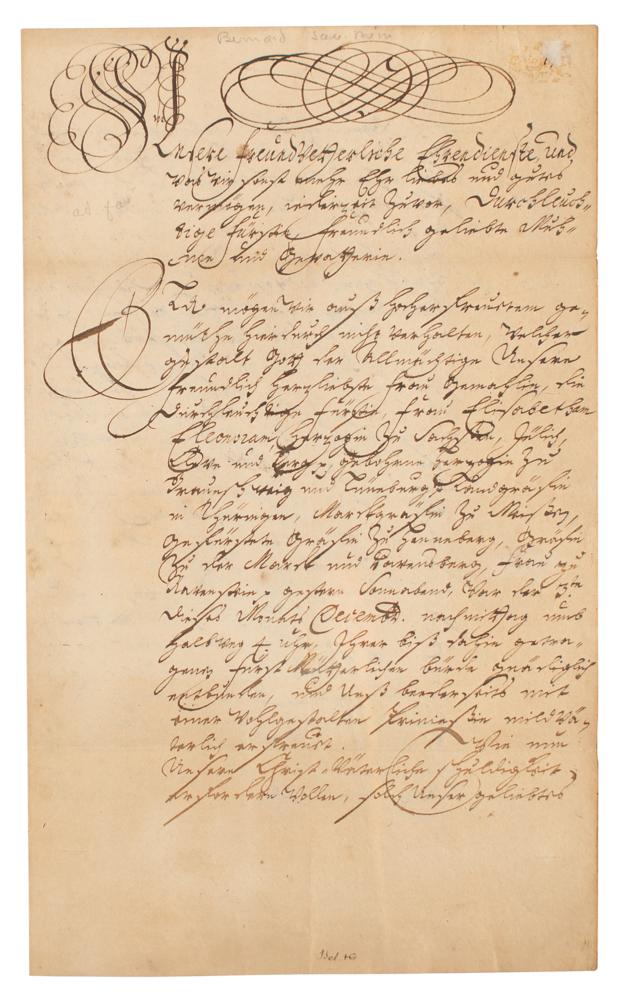 Bernard Sax. Mein
Unsere freundVetterliche Ehrendienste, und
was wir sonst mehr Ehr liebes und gutes
vermögen, iederzeit zuvor, Durchleuch-
tige Fürstin, freundlich geliebte Muh-
me und Gevatterin.
Eld. mögen wir auß hocherfreuetem ge-
müthe hierdurch nicht verhalten, welcher
gestalt Gott der Allmächtige Unsere
freundlich hertzliebste Frau Gemahlin, die
Durchleuchtige Fürstin, Frau Elisabetham
Eleonoram Hertzogin zu Sachßen, Jülich,
Cleve und Berg, gebohrne Hertzogin zu
Braunschweig und Lüneburg, Landgräfin
in Thüringen, Marckgräfin zu Meißen,
Gefürstete Gräfin zu Henneberg, Gräfin
zu der Marck und Ravensberg, Frau zu
Ravenstein gestern Sonnabend, war der 3te
dieses Monats Decembr. nachmittag umb
halbweg 4. uhr, Ihrer biß dahin getra-
genen Fürst Mütterlichen bürde gnädiglich
entbunden, und Unß beederseits mit
einer wohlgestalten Princeßin mildvä-
terlich erfreuet. Wie nun
Unsere Christ-Väterliche schuldigkeit
erfordern wollen, solch Unser geliebtes